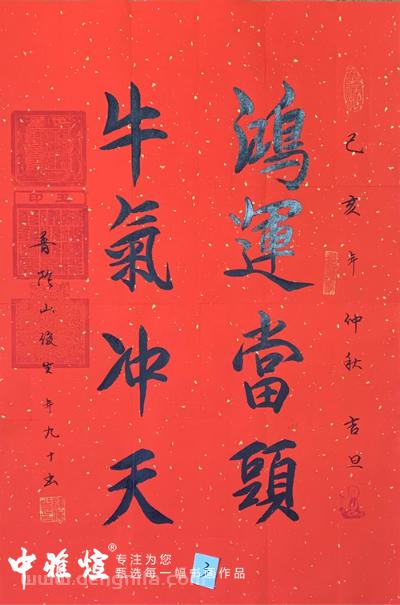 己亥年仲秋 吉旦
鴻運當頭
牛氣冲天
普陀山俊生年九十書
玉印
中雅煊®
专注为您
甄选每一幅书画作品